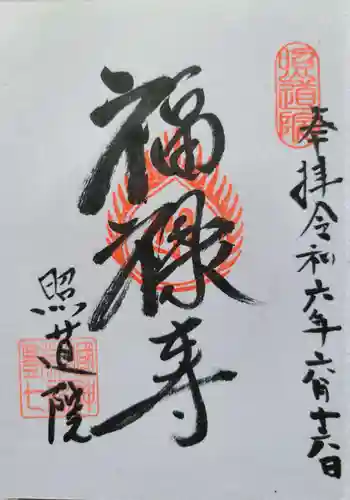 照道院
奉拝 令和六年六月十六日
福禄寿
照道院